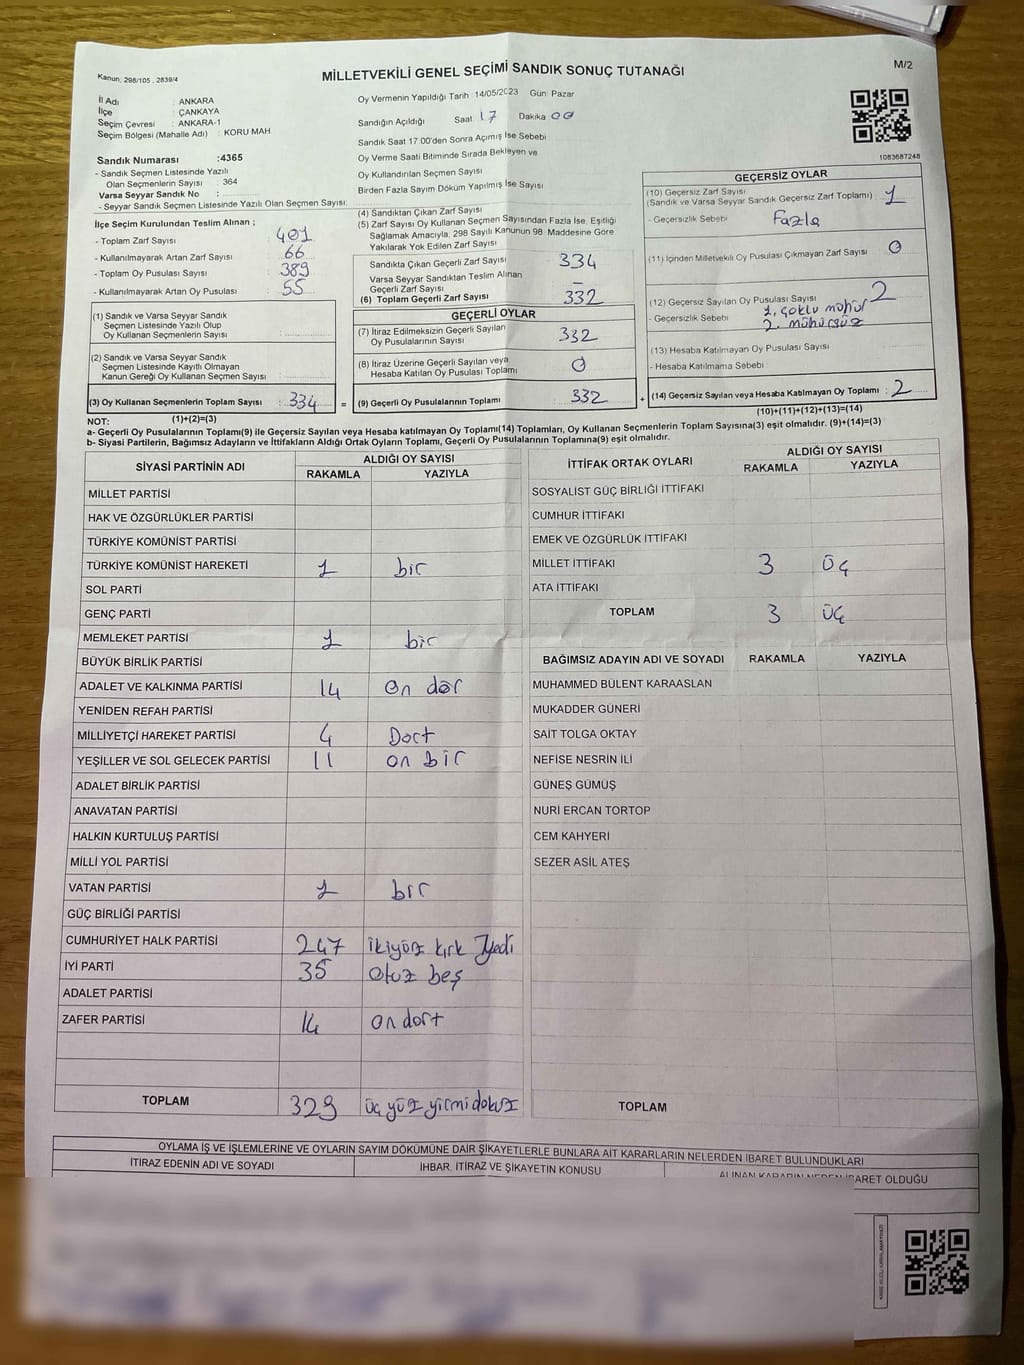 Kanun; 298/105 , 2839/4
MİLLETVEKİLİ GENEL SEÇİMİ SANDIK SONUÇ TUTANAĞI
M/2
İl Adı : ANKARA
İlçe : ÇANKAYA
Seçim Çevresi : ANKARA-1
Seçim Bölgesi (Mahalle Adı) : KORU MAH
Sandık Numarası :4365
- Sandık Seçmen Listesinde Yazılı
Olan Seçmenlerin Sayısı : 364
Varsa Seyyar Sandık No :
- Seyyar Sandık Seçmen Listesinde Yazılı Olan Seçmen Sayısı:
Oy Vermenin Yapıldığı Tarih :14/05/2023 Gün: Pazar
Sandığın Açıldığı Saat 17 Dakika 00
Sandık Saat 17.00'den Sonra Açımış İse Sebebi
Oy Verme Saati Bitiminde Sırada Bekleyen ve
Oy Kullandırılan Seçmen Sayısı
Birden Fazla Sayım Döküm Yapılmış İse Sayısı
1083687248
İlçe Seçim Kurulundan Teslim Alınan ;
- Toplam Zarf Sayısı 401
- Kullanılmayarak Artan Zarf Sayısı 66
- Toplam Oy Pusulası Sayısı 389
- Kullanılmayarak Artan Oy Pusulası 55
(1) Sandık ve Varsa Seyyar Sandık
Seçmen Listesinde Yazılı Olup
Oy Kullanan Seçmenlerin Sayısı :
(2) Sandık ve Varsa Seyyar Sandık
Seçmen Listesinde Kayıtlı Olmayan
Kanun Gereği Oy Kullanan Seçmen Sayısı :
(3) Oy Kullanan Seçmenlerin Toplam Sayısı : 334 =
(4) Sandıktan Çıkan Zarf Sayısı
(5) Zarf Sayısı Oy Kullanan Seçmen Sayısından Fazla İse, Eşitliği
Sağlamak Amacıyla, 298 Sayılı Kanunun 98. Maddesine Göre
Yakılarak Yok Edilen Zarf Sayısı
Sandıkta Çıkan Geçerli Zarf Sayısı 334
Varsa Seyyar Sandıktan Teslim Alınan
Geçerli Zarf Sayısı –
(6) Toplam Geçerli Zarf Sayısı 332
GEÇERLİ OYLAR
(7) İtiraz Edilmeksizin Geçerli Sayılan
Oy Pusulalarının Sayısı 332
(8) İtiraz Üzerine Geçerli Sayılan veya
Hesaba Katılan Oy Pusulası Toplamı 0
(9) Geçerli Oy Pusulalarının Toplamı 332 +
GEÇERSİZ OYLAR
(10) Geçersiz Zarf Sayısı
(Sandık ve Varsa Seyyar Sandık Geçersiz Zarf Toplamı) : 1
- Geçersizlik Sebebi : Fazla
(11) İçinden Milletvekili Oy Pusulası Çıkmayan Zarf Sayısı : 0
(12) Geçersiz Sayılan Oy Pusulası Sayısı : 2
- Geçersizlik Sebebi 1. çoklu mühür
2. mühürsüz
(13) Hesaba Katılmayan Oy Pusulası Sayısı
- Hesaba Katılmama Sebebi
(14) Geçersiz Sayılan veya Hesaba Katılmayan Oy Toplamı : 2
(10)+(11)+(12)+(13)=(14)
NOT: (1)+(2)=(3)
a- Geçerli Oy Pusulalarının Toplamı(9) ile Geçersiz Sayılan veya Hesaba katılmayan Oy Toplamı(14) Toplamları, Oy Kullanan Seçmenlerin Toplam Sayısına(3) eşit olmalıdır. (9)+(14)=(3)
b- Siyasi Partilerin, Bağımsız Adayların ve İttifakların Aldığı Ortak Oyların Toplamı, Geçerli Oy Pusulalarının Toplamına(9) eşit olmalıdır.
SİYASİ PARTİNİN ADI ALDIĞI OY SAYISI
RAKAMLA YAZIYLA
MİLLET PARTİSİ
HAK VE ÖZGÜRLÜKLER PARTİSİ
TÜRKİYE KOMÜNİST PARTİSİ
TÜRKİYE KOMÜNİST HAREKETİ 1 bir
SOL PARTİ
GENÇ PARTİ
MEMLEKET PARTİSİ 1 bir
BÜYÜK BİRLİK PARTİSİ
ADALET VE KALKINMA PARTİSİ 14 on dör
YENİDEN REFAH PARTİSİ
MİLLİYETÇİ HAREKET PARTİSİ 4 Dort
YEŞİLLER VE SOL GELECEK PARTİSİ 11 on bir
ADALET BİRLİK PARTİSİ
ANAVATAN PARTİSİ
HALKIN KURTULUŞ PARTİSİ
MİLLİ YOL PARTİSİ
VATAN PARTİSİ 1 bir
GÜÇ BİRLİĞİ PARTİSİ
CUMHURİYET HALK PARTİSİ 247 ikiyüz kırk Yedi
İYİ PARTİ 35 otuz beş
ADALET PARTİSİ
ZAFER PARTİSİ 14 on dort
TOPLAM 329 üç yüz yirmidokuz
İTTİFAK ORTAK OYLARI ALDIĞI OY SAYISI
RAKAMLA YAZIYLA
SOSYALİST GÜÇ BİRLİĞİ İTTİFAKI
CUMHUR İTTİFAKI
EMEK VE ÖZGÜRLÜK İTTİFAKI
MİLLET İTTİFAKI 3 üç
ATA İTTİFAKI
TOPLAM 3 üç
BAĞIMSIZ ADAYIN ADI VE SOYADI RAKAMLA YAZIYLA
MUHAMMED BÜLENT KARAASLAN
MUKADDER GÜNERİ
SAİT TOLGA OKTAY
NEFİSE NESRİN İLİ
GÜNEŞ GÜMÜŞ
NURİ ERCAN TORTOP
CEM KAHYERİ
SEZER ASİL ATEŞ
TOPLAM
OYLAMA İŞ VE İŞLEMLERİNE VE OYLARIN SAYIM DÖKÜMÜNE DAİR ŞİKAYETLERLE BUNLARA AİT KARARLARIN NELERDEN İBARET BULUNDUKLARI
İTİRAZ EDENİN ADI VE SOYADI İHBAR, İTİRAZ VE ŞİKAYETİN KONUSU ALINAN KARARIN NEDEN İBARET OLDUĞU